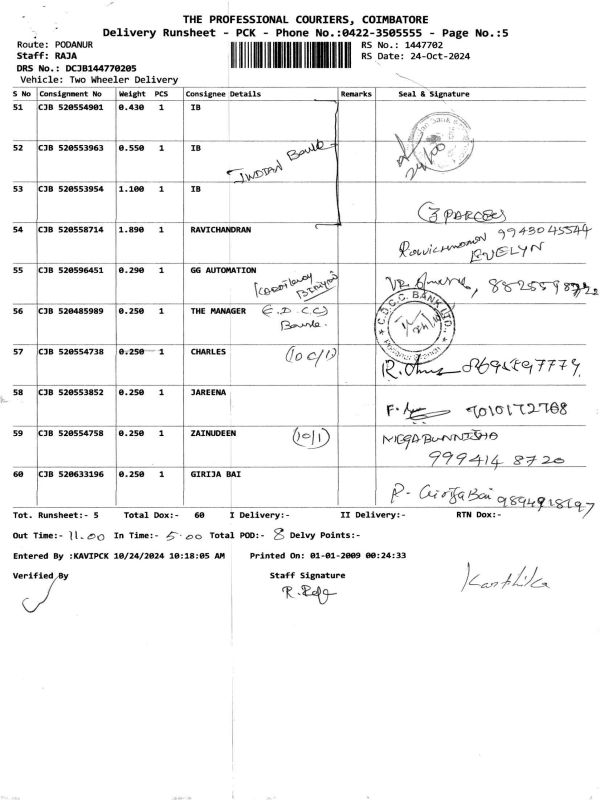 THE PROFESSIONAL COURIERS, COIMBATORE
Delivery Runsheet - PCK - Phone No.:0422-3505555 - Page No.:5
Route: PODANUR
RS No.: 1447702
Staff: RAJA
RS Date: 24-Oct-2024
DRS No.: DCJB144770205
Vehicle: Two Wheeler Delivery
S No Consignment No Weight PCS Consignee Details Remarks Seal & Signature
51 CJB 520554901 0.430 1 IB
52 CJB 520553963 0.550 1 IB
INDIAN Bank
53 CJB 520553954 1.100 1 IB
3 PARCELS
54 CJB 520558714 1.890 1 RAVICHANDRAN
Ravichandran 9943045544
EVELYN
55 CJB 520596451 0.290 1 GG AUTOMATION
56 CJB 520485989 0.250 1 THE MANAGER
C.D.C.C. BANK LTD.
Bank.
57 CJB 520554738 0.250 1 CHARLES
58 CJB 520553852 0.250 1 JAREENA
59 CJB 520554758 0.250 1 ZAINUDEEN (10/1)
999414 8720
60 CJB 520633196 0.250 1 GIRIJA BAI
R. Girija Bai
Tot. Runsheet:- 5 Total Dox:- 60 I Delivery:- II Delivery:- RTN Dox:-
Out Time:- 11.00 In Time:- 5.00 Total POD:- 8 Delvy Points:-
Entered By :KAVIPCK 10/24/2024 10:18:05 AM Printed On: 01-01-2009 00:24:33
Verified By
Staff Signature
Karthika